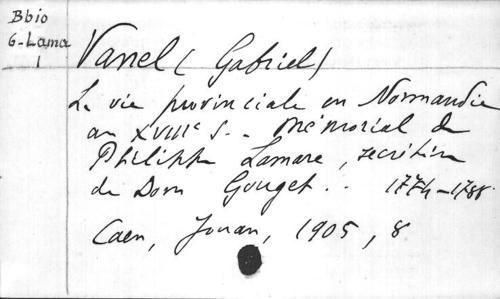 Bbio
6-Lama
1
Vanel (Gabriel)
La vie provinciale en Normandie
au XVIIIe s. - Mémorial de
Philippe Lamare, secrétaire
de Dom Gouget .. 1774-1788
Caen, Jouan, 1905, 8